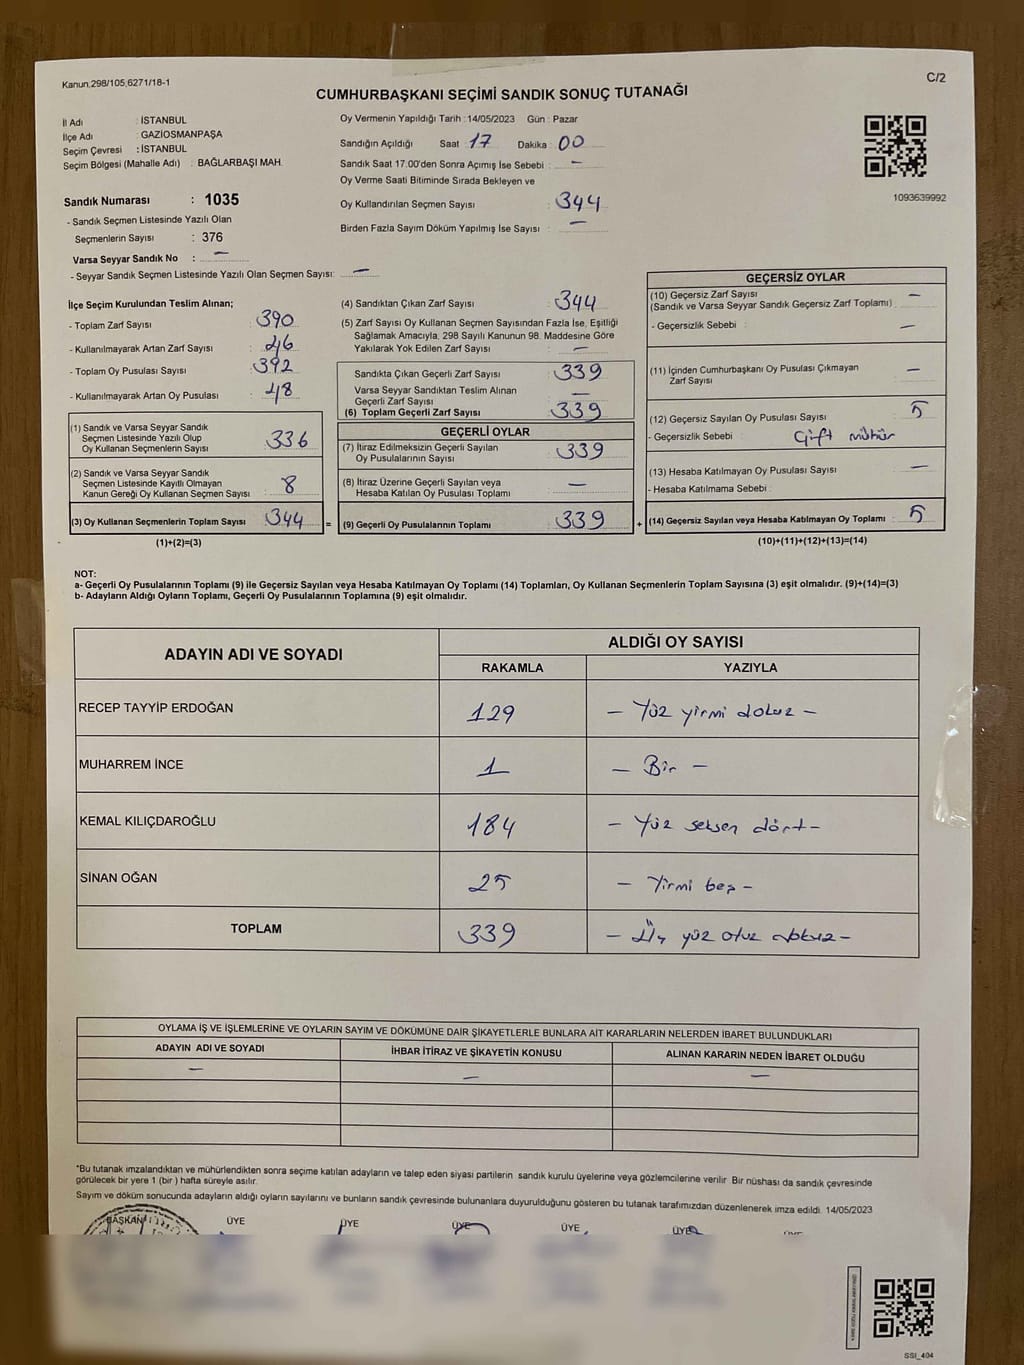 Kanun,298/105,6271/18-1
C/2
CUMHURBAŞKANI SEÇİMİ SANDIK SONUÇ TUTANAĞI
İl Adı : İSTANBUL
İlçe Adı : GAZİOSMANPAŞA
Seçim Çevresi : İSTANBUL
Seçim Bölgesi (Mahalle Adı) : BAĞLARBAŞI MAH.
Sandık Numarası : 1035
- Sandık Seçmen Listesinde Yazılı Olan
Seçmenlerin Sayısı : 376
Varsa Seyyar Sandık No : —
- Seyyar Sandık Seçmen Listesinde Yazılı Olan Seçmen Sayısı: —
Oy Vermenin Yapıldığı Tarih : 14/05/2023 Gün : Pazar
Sandığın Açıldığı Saat 17 Dakika : 00
Sandık Saat 17.00'den Sonra Açımış İse Sebebi : —
Oy Verme Saati Bitiminde Sırada Bekleyen ve
Oy Kullandırılan Seçmen Sayısı : 344
Birden Fazla Sayım Döküm Yapılmış İse Sayısı : —
1093639992
İlçe Seçim Kurulundan Teslim Alınan;
- Toplam Zarf Sayısı : 390
- Kullanılmayarak Artan Zarf Sayısı : 46
- Toplam Oy Pusulası Sayısı : 392
- Kullanılmayarak Artan Oy Pusulası : 48
(1) Sandık ve Varsa Seyyar Sandık
Seçmen Listesinde Yazılı Olup
Oy Kullanan Seçmenlerin Sayısı 336
(2) Sandık ve Varsa Seyyar Sandık
Seçmen Listesinde Kayıtlı Olmayan
Kanun Gereği Oy Kullanan Seçmen Sayısı 8
(3) Oy Kullanan Seçmenlerin Toplam Sayısı 344
(1)+(2)=(3)
(4) Sandıktan Çıkan Zarf Sayısı : 344
(5) Zarf Sayısı Oy Kullanan Seçmen Sayısından Fazla İse, Eşitliği
Sağlamak Amacıyla, 298 Sayılı Kanunun 98. Maddesine Göre
Yakılarak Yok Edilen Zarf Sayısı : —
Sandıkta Çıkan Geçerli Zarf Sayısı : 339
Varsa Seyyar Sandıktan Teslim Alınan
Geçerli Zarf Sayısı : —
(6) Toplam Geçerli Zarf Sayısı : 339
GEÇERLİ OYLAR
(7) İtiraz Edilmeksizin Geçerli Sayılan
Oy Pusulalarının Sayısı : 339
(8) İtiraz Üzerine Geçerli Sayılan veya
Hesaba Katılan Oy Pusulası Toplamı : —
= (9) Geçerli Oy Pusulalarının Toplamı : 339 +
GEÇERSİZ OYLAR
(10) Geçersiz Zarf Sayısı : —
(Sandık ve Varsa Seyyar Sandık Geçersiz Zarf Toplamı)
- Geçersizlik Sebebi : —
(11) İçinden Cumhurbaşkanı Oy Pusulası Çıkmayan
Zarf Sayısı : —
(12) Geçersiz Sayılan Oy Pusulası Sayısı : 5
- Geçersizlik Sebebi : Çift mühür
(13) Hesaba Katılmayan Oy Pusulası Sayısı : —
- Hesaba Katılmama Sebebi :
(14) Geçersiz Sayılan veya Hesaba Katılmayan Oy Toplamı : 5
(10)+(11)+(12)+(13)=(14)
NOT:
a- Geçerli Oy Pusulalarının Toplamı (9) ile Geçersiz Sayılan veya Hesaba Katılmayan Oy Toplamı (14) Toplamları, Oy Kullanan Seçmenlerin Toplam Sayısına (3) eşit olmalıdır. (9)+(14)=(3)
b- Adayların Aldığı Oyların Toplamı, Geçerli Oy Pusulalarının Toplamına (9) eşit olmalıdır.
ADAYIN ADI VE SOYADI ALDIĞI OY SAYISI
RAKAMLA YAZIYLA
RECEP TAYYİP ERDOĞAN 129 — Yüz yirmi dokuz —
MUHARREM İNCE 1 — Bir —
KEMAL KILIÇDAROĞLU 184 — Yüz seksen dört —
SİNAN OĞAN 25 — Yirmi beş —
TOPLAM 339 — Üç yüz otuz dokuz —
OYLAMA İŞ VE İŞLEMLERİNE VE OYLARIN SAYIM VE DÖKÜMÜNE DAİR ŞİKAYETLERLE BUNLARA AİT KARARLARIN NELERDEN İBARET BULUNDUKLARI
ADAYIN ADI VE SOYADI İHBAR İTİRAZ VE ŞİKAYETİN KONUSU ALINAN KARARIN NEDEN İBARET OLDUĞU
— — —
*Bu tutanak imzalandıktan ve mühürlendikten sonra seçime katılan adayların ve talep eden siyasi partilerin sandık kurulu üyelerine veya gözlemcilerine verilir. Bir nüshası da sandık çevresinde
görülecek bir yere 1 (bir ) hafta süreyle asılır.
Sayım ve döküm sonucunda adayların aldığı oyların sayılarını ve bunların sandık çevresinde bulunanlara duyurulduğunu gösteren bu tutanak tarafımızdan düzenlenerek imza edildi. 14/05/2023
BAŞKAN ÜYE ÜYE ÜYE ÜYE ÜYE
SSI_404